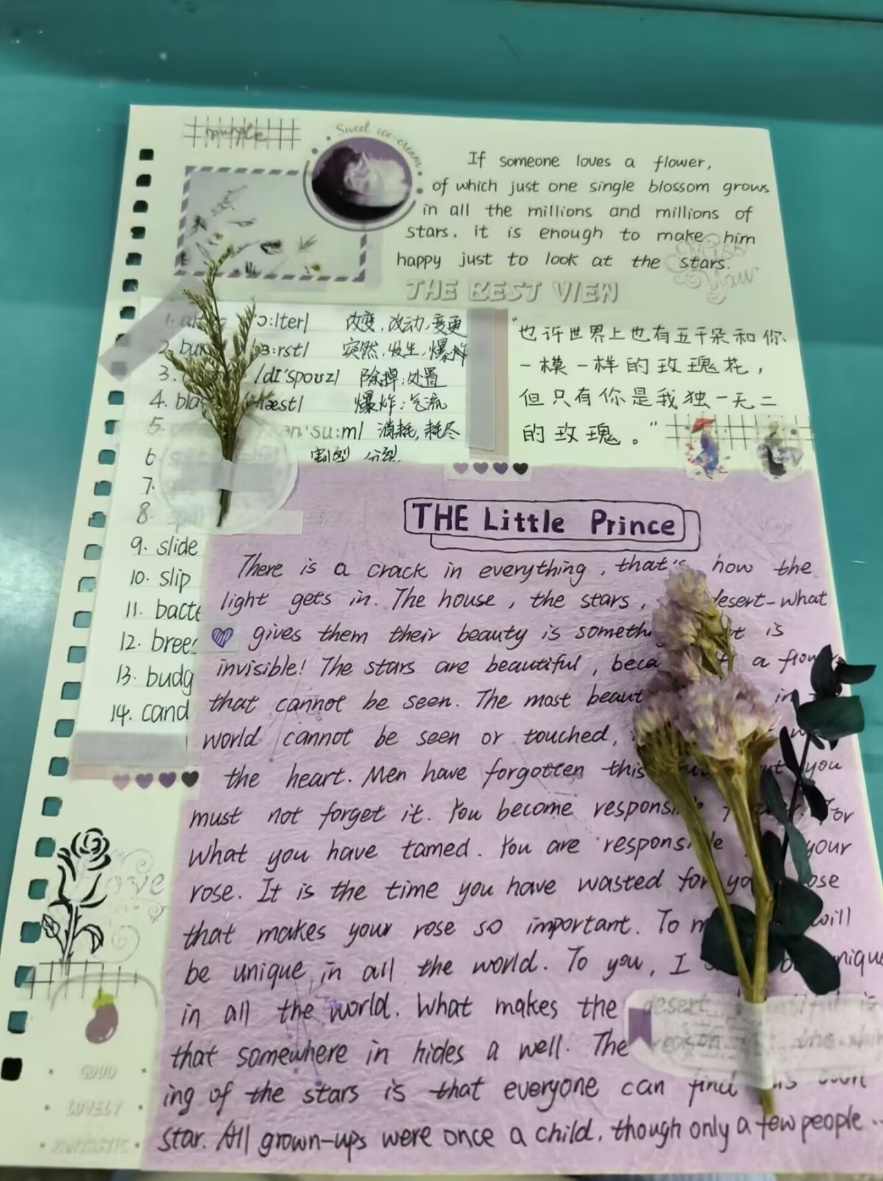 purple
Sweet ice-cream
If someone loves a flower,
of which just one single blossom grows
in all the millions and millions of
stars. it is enough to make him
happy just to look at the stars.
THE BEST VIEW
1. /ɔ:lter/ 改变,改动,变更
2. /bɜ:rst/ 突然,发生,爆炸
3. /dɪ'spoʊz/ 除掉;处置
4. /blæst/ 爆炸;气流
5. 消耗,耗尽
6
7.
8.
9. slide
10. slip
11. bacte
12. bree
13. budg
14. cand
"也许世界上也有五千朵和你
一模一样的玫瑰花,
但只有你是我独一无二
的玫瑰。"
THE Little Prince
There is a crack in everything, that's how the
light gets in. The house, the stars, desert-what
gives them their beauty is is
invisible! The stars are beautiful, a
that cannot be seen. The most in
world cannot be seen or touched,
the heart. Men have forgotten this you
must not forget it. You become For
what you have tamed. You are your
rose. It is the time you have wasted for
that makes your rose so important. To will
be unique in all the world. To you, I
in all the world. What makes the desert
that somewhere in hides a well. The reason
ing of the stars is that everyone can find own
star. All grown-ups were once a child, though only a few people...
love
GOOD
LOVELY